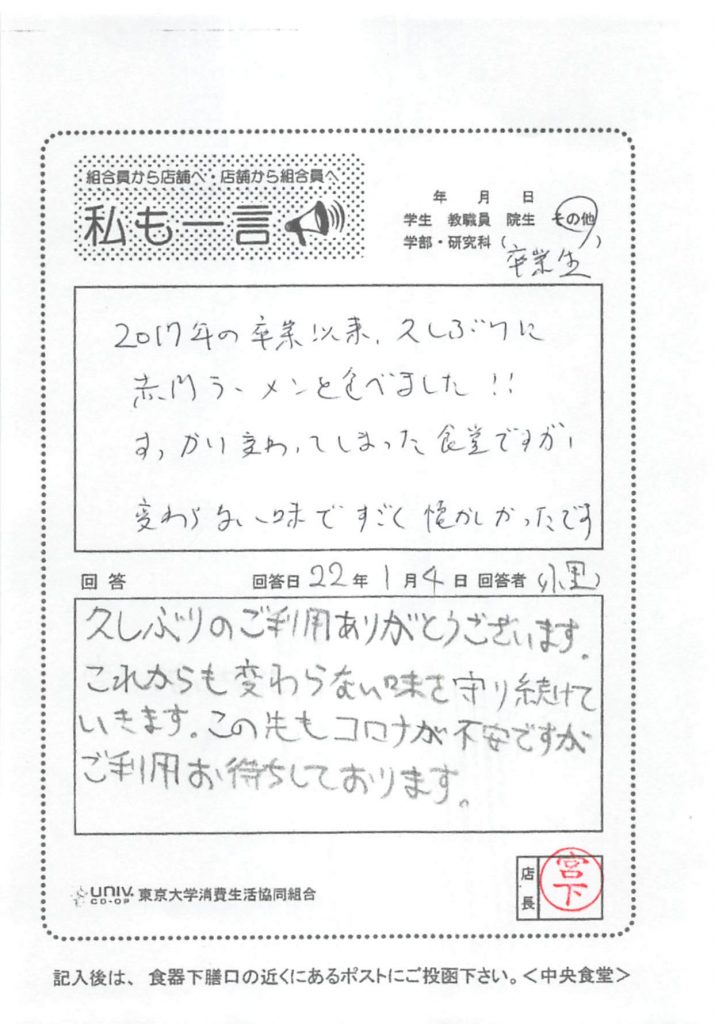 組合員から店舗へ・店舗から組合員へ
私も一言
年 月 日
学生 教職員 院生 その他
学部・研究科( )
卒業生
2017年の卒業以来、久しぶりに
赤門ラーメンを食べました!!
すっかり変わってしまった食堂ですが、
変わらない味ですごく懐かしかったです
回答 回答日 22年 1月 4日 回答者(小里)
久しぶりのご利用ありがとうございます。
これからも変わらない味を守り続けて
いきます。この先もコロナが不安ですが
ご利用お待ちしております。
UNIV. CO-OP 東京大学消費生活協同組合
店長 宮下
記入後は、食器下膳口の近くにあるポストにご投函下さい。<中央食堂>